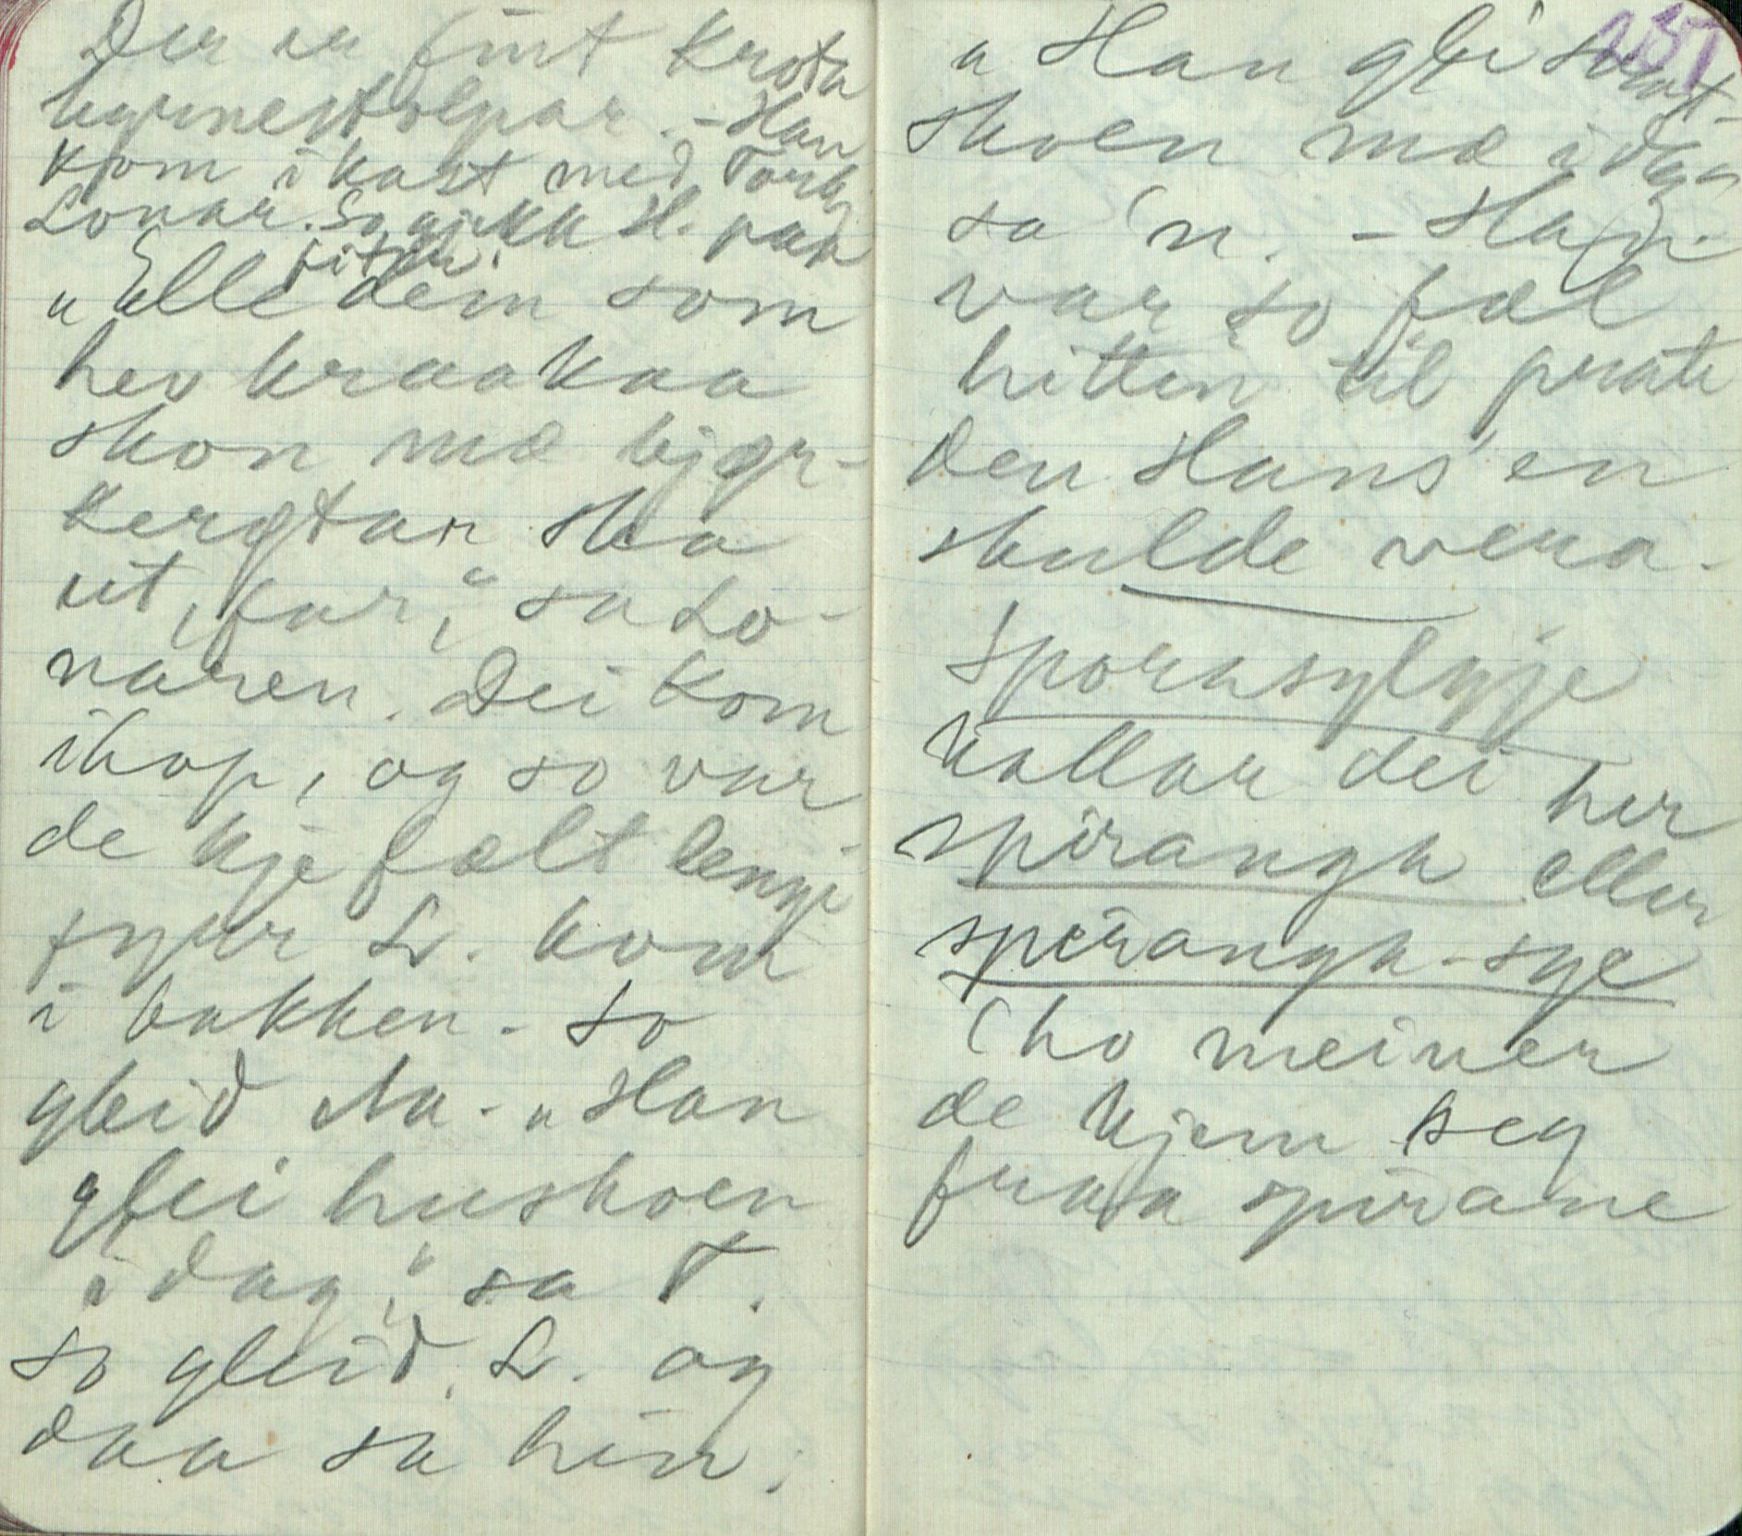 Der er fint krota
hyrnestolpar. - Han
kom i kast med Torb.
Lonar. So gjekk H. paa
fit
"Elle dem som
hev kraakaa
skon mæ bjør-
ut, far," sa Lo-
naren. Dei kom
ihop, og so var
de kje fælt lengji
fyrr L. kom
i bakken. So
gleid Aa. "Han
glei huskoen
i dag," sa T.
So gleid L. og
daa sa hin:
257
"Han glei svart-
skoen mæ i dag"
sa 'n. - Han
var so fæl
hitten til prate
den Hans'en
skulde vera.
Sporasylgje
kallar dei her
spirangh eller
spirangh-sye
(ho meiner
de kjem seg
fraa spirane